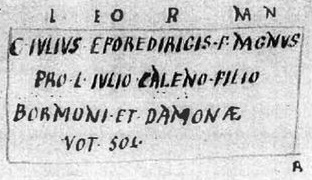 L E O R M N
C IVLIVS EPOREDIRIGIS·F·MAGNVS
PRO·L·IVLIO CALENO·FILIO
BORMONI·ET·DAMONÆ
VOT SOL·
R